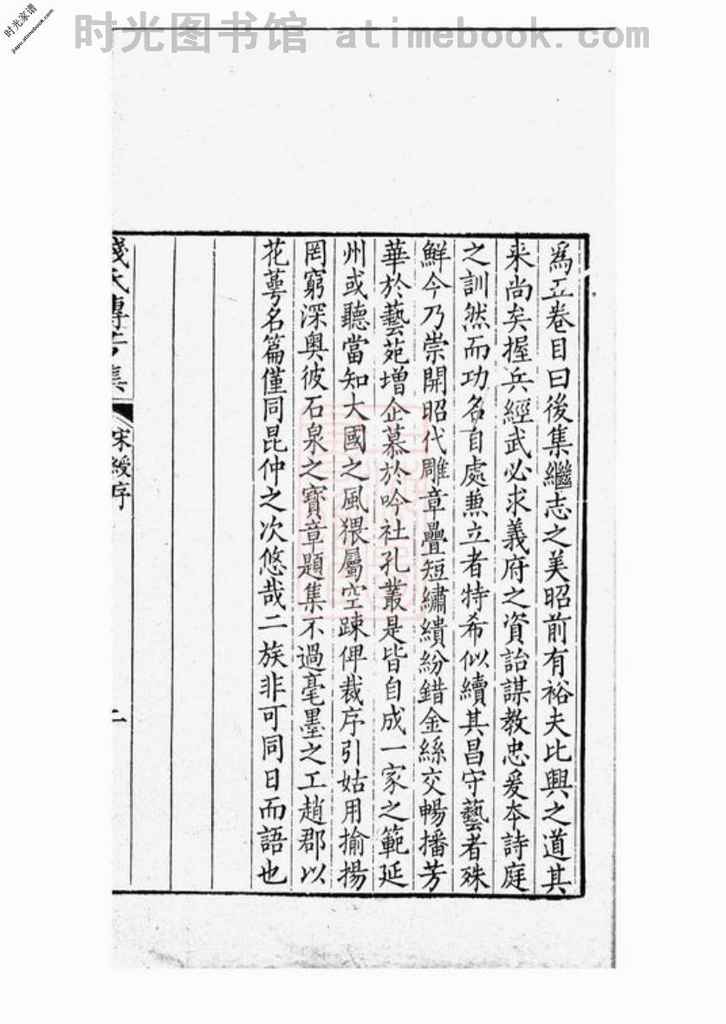 时光图书馆 atimebook.com
时光家谱
jiapu.atimebook.com
爲五卷目曰後集繼志之美昭前有裕夫比興之道其
来尚矣握兵經武必求義府之資詒謀教忠爰本詩庭
之訓然而功名自處兼立者特希似續其昌守藝者殊
鮮今乃崇開昭代雕章疊短繡繢紛錯金絲交暢播芳
華於藝苑增企慕於吟社孔叢是皆自成一家之範延
州或聽當知大國之風猥屬空踈俾裁序引姑用揄揚
罔窮深奥彼石泉之寶章題集不過毫墨之工趙郡以
花萼名篇僅同昆仲之次悠哉二族非可同日而語也
錢氏傳芳集
宋綬序
二